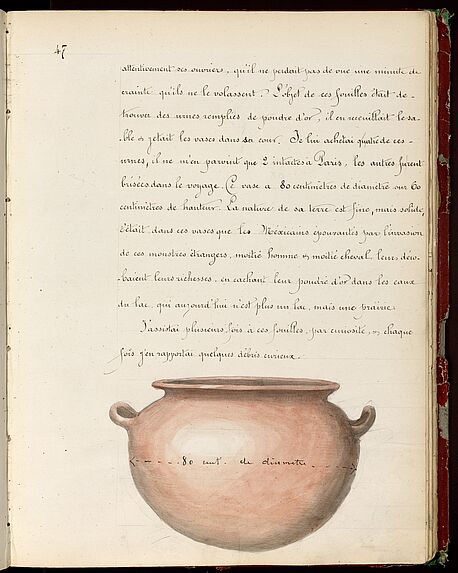 47
attentivement ses ouvriers, qu'il ne perdait pas de vue une minute de
crainte qu'ils ne le volassent. L'objet de ces fouilles était de
trouver des urnes remplies de poudre d'or, il en recueillait le sa-
ble & jetait les vases dans sa cour. Je lui achetai quatre de ces
urnes, il ne m'en parvint que 2 intactes à Paris, les autres furent
brisées dans le voyage. Ce vase a 80 centimètres de diamètre sur 60
centimètres de hauteur. La nature de sa terre est fine, mais solide,
c'était dans ces vases que les Mexicains épouvantés par l'invasion
de ces monstres étrangers, moitié homme & moitié cheval, leur déro-
baient leurs richesses, en cachant leur poudre d'or dans les eaux
du lac, qui aujourd'hui n'est plus un lac, mais une prairie.
J'assistai plusieurs fois à ces fouilles, par curiosité, & chaque
fois j'en rapportai quelques débris curieux.
80 cent. de diamètre